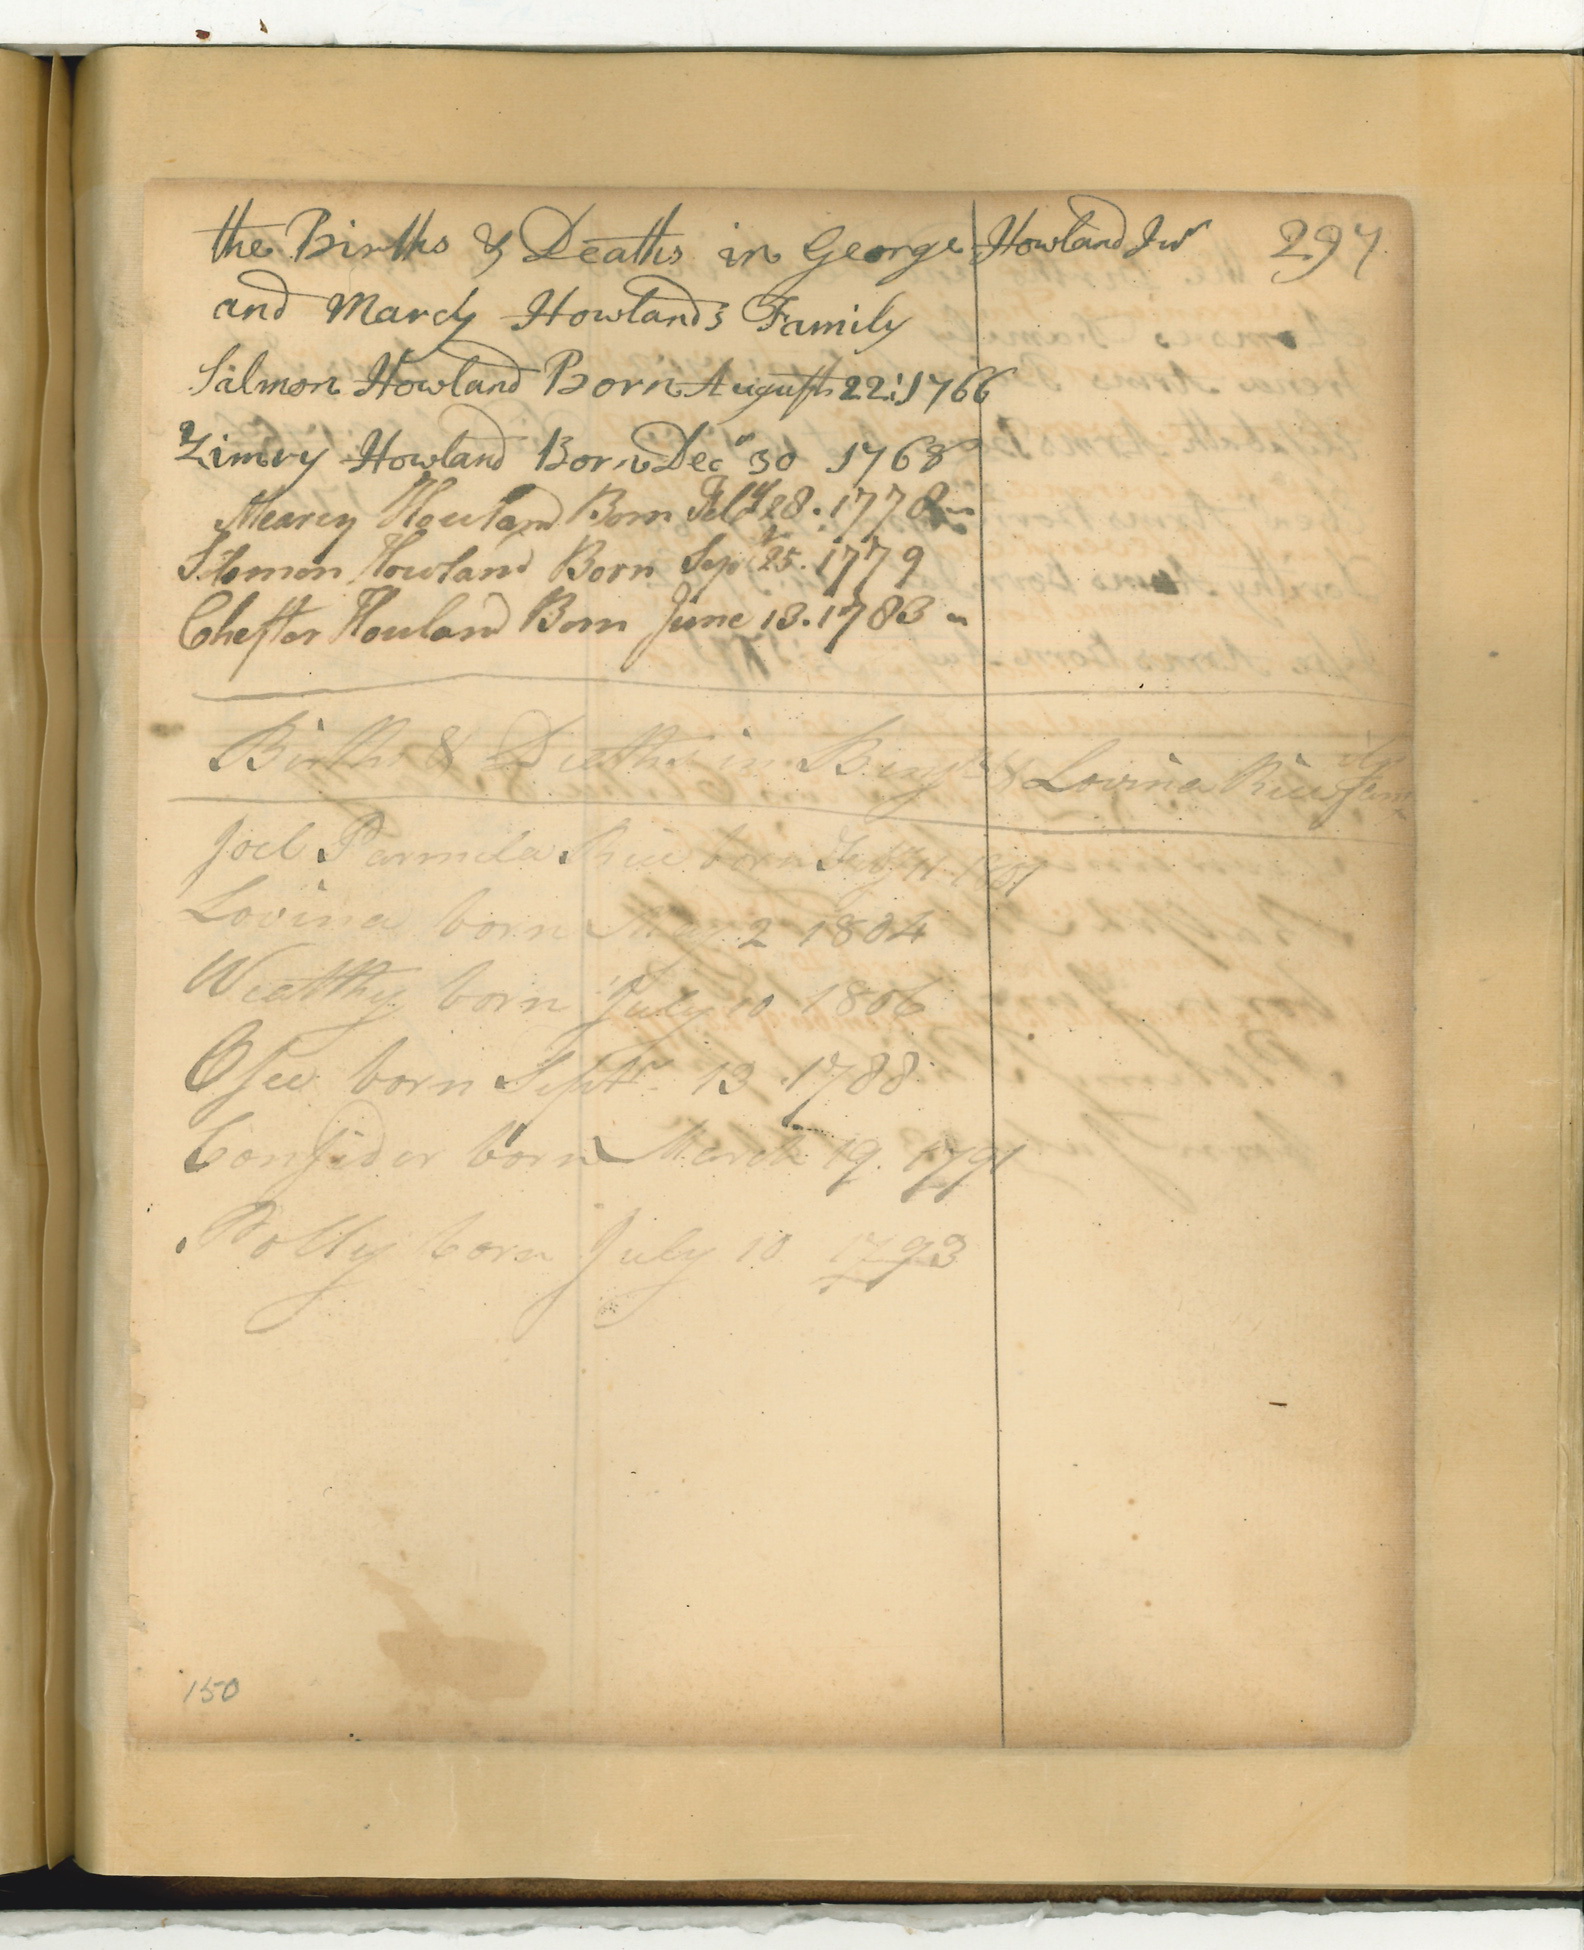 the Births & Deaths in George Howland Jur 297
and Marcy Howland's Family
Salmon Howland Born August 22: 1766
Zimry Howland Born Decr 30 1768
Mearcy Howland Born Feby 28. 1778
Solomon Howland Born Sept 25. 1779
Chester Howland Born June 13. 1783
Births & Deaths in & Lovina Rice
Joel Parmela Rice born Feby 11 1801
Lovina born May 2 1804
Wealthy born July 10 1806
Osee born Septr 13 1788
Consider born March 19. 1791
Polly born July 10 1793
150